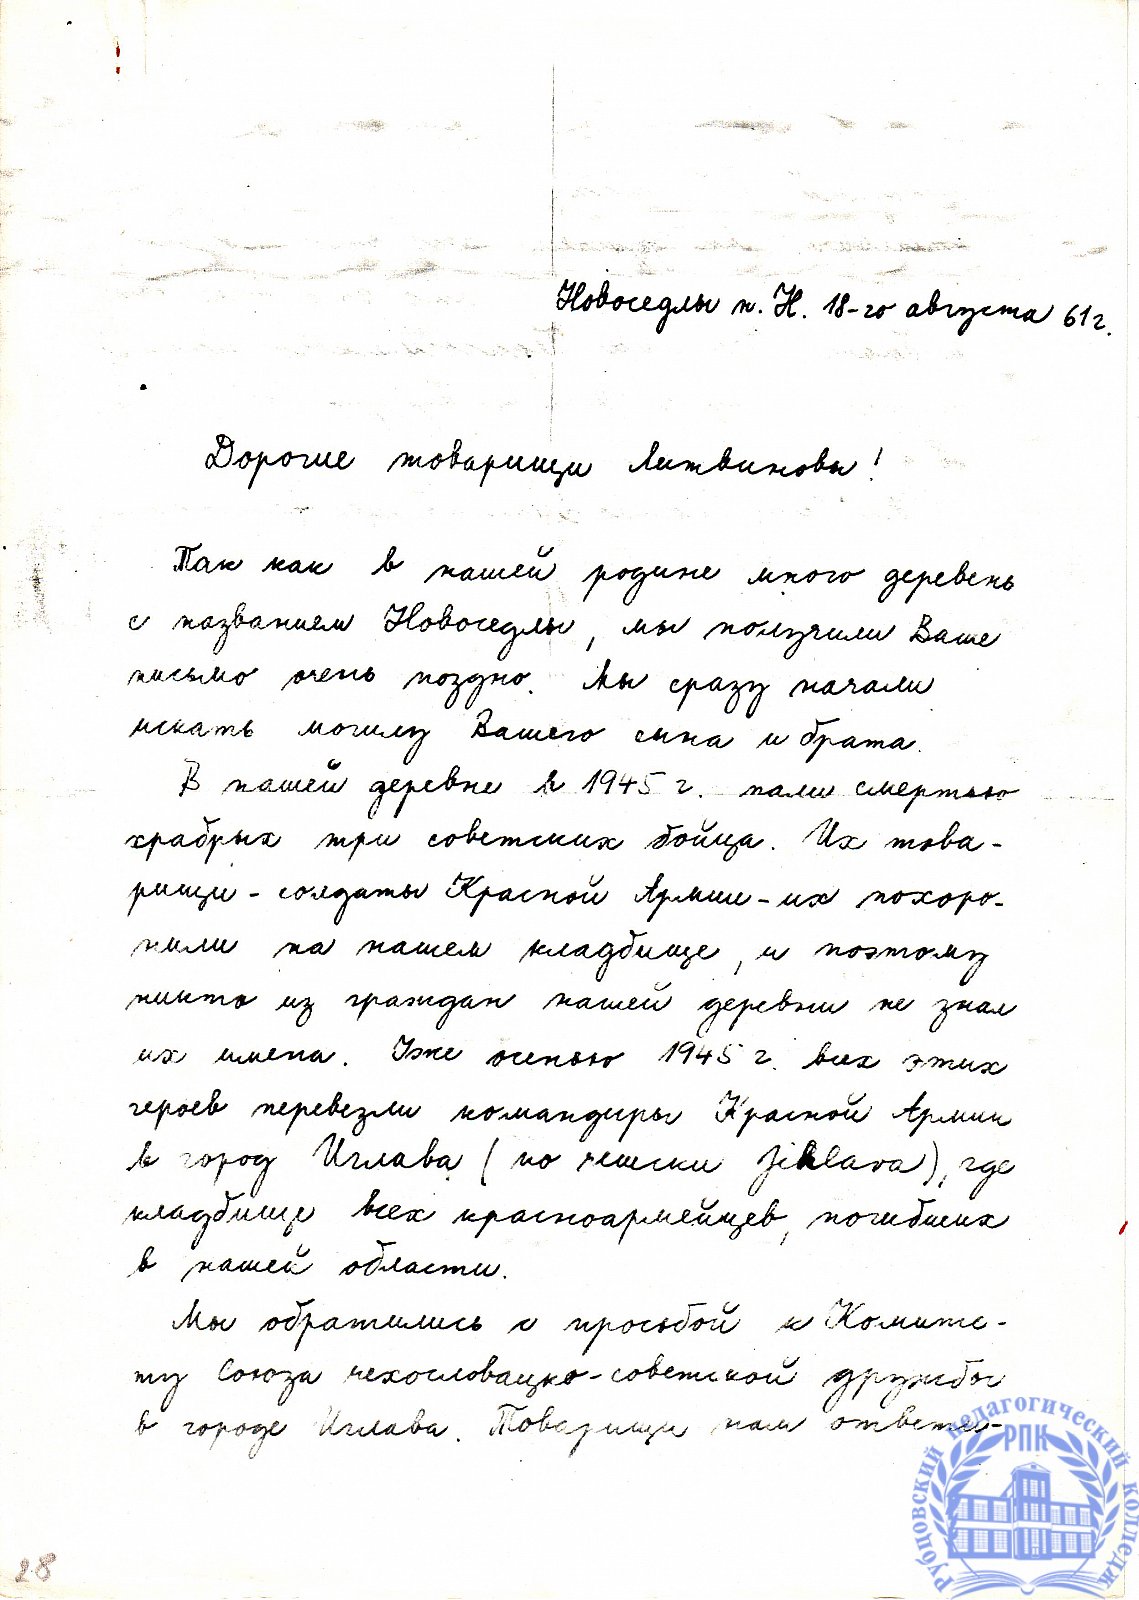 Новоседлы н. Н. 18-го августа 61 г.
Дорогие товарищи Литвиновы!
Так как в нашей родине много деревень
с названием Новоседлы, мы получили Ваше
письмо очень поздно. Мы сразу начали
искать могилу Вашего сына и брата.
В нашей деревне в 1945 г. пали смертью
храбрых три советских бойца. Их това-
рищи - солдаты Красной Армии - их похоро-
нили на нашем кладбище, и поэтому
никто из граждан нашей деревни не знал
их имена. Уже осенью 1945 г. всех этих
героев перевезли командиры Красной Армии
в город Иглава (по чешски Jihlava), где
кладбище всех красноармейцев, погибших
в нашей области.
Мы обратились с просьбой к Комите-
ту Союза чехословацко-советской дружбы
в городе Иглава. Товарищи нам ответи-
28
Рубцовский педагогический колледж
РПК